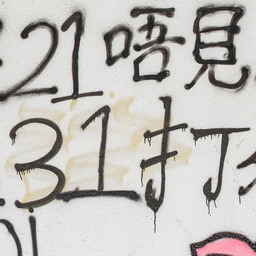 .21唔見
.31打